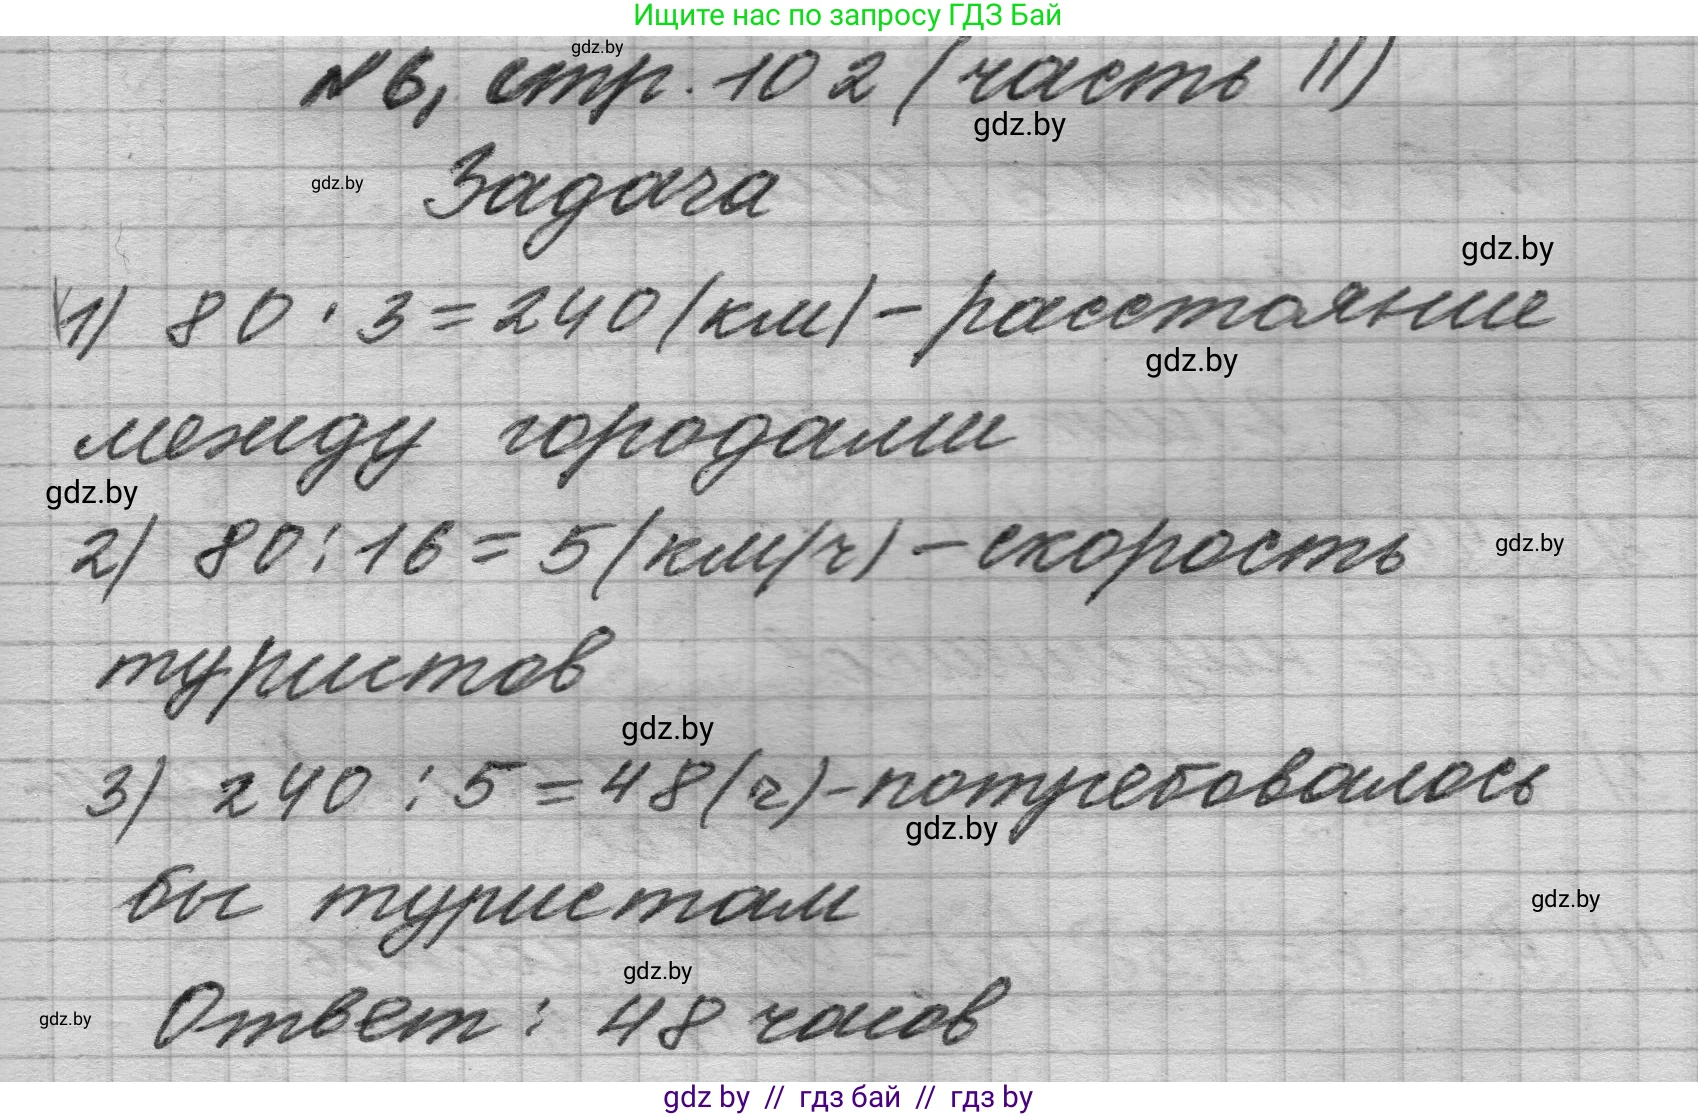 Ищите нас по запросу ГДЗ Бай
gdz.by
№6, стр. 102 (часть II)
gdz.by
gdz.by
Задача
gdz.by
1) 80 · 3 = 240 (км) - расстояние
gdz.by
между городами
gdz.by
2) 80 : 16 = 5 (км/ч) - скорость
gdz.by
туристов
gdz.by
3) 240 : 5 = 48 (ч) - потребовалось
gdz.by
бы туристам
gdz.by
gdz.by
gdz.by
Ответ: 48 часов
gdz by // гдз бай // гдз by